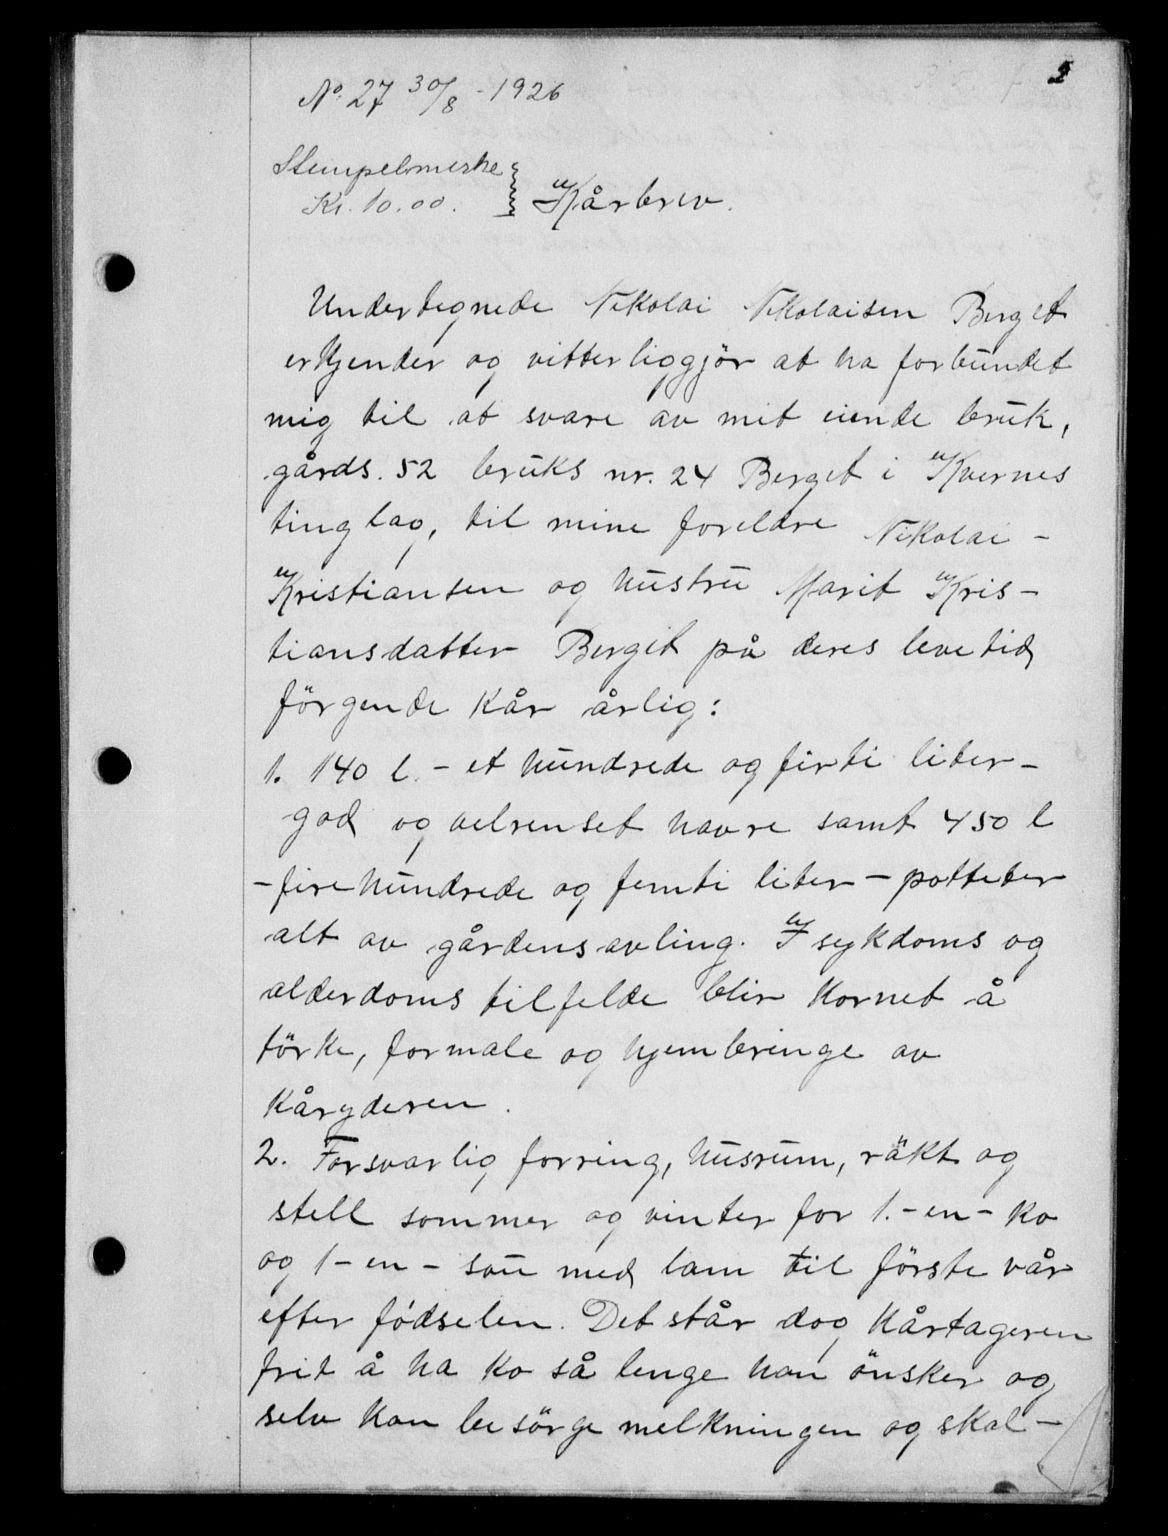 No. 27 30/8 - 1926
Stempelmerke
Kr. 10.00.
Kårbrev.
Undertegnede Nikolai Nikolaisen Berget
erkjender og vitterliggjör at ha forbundet
mig til at svare av mit eiende bruk,
gårds. 52 bruks nr. 24 Berget i Kvernes
tinglag, til mine foreldre Nikolai -
Kristiansen og hustru Marit Kris-
tiansdatter Berget på deres levetid
förgende kår årlig:
1. 140 l. - et hundrede og firti liter -
god og velrenset havre samt 450 l
- firehundrede og femti liter - potteter
alt av gårdens avling. I sykdoms og
alderdoms tilfelde blir kornet å
törke, formale og hjembringe av
kåryderen.
2. Forsvarlig forring, husrum, räkt og
stell sommer og vinter for 1. - en - ko
og 1 - en - sau med lam til förste vår
efter födselen. Det står dog kårtageren
frit å ha ko så lenge han önsker og
selv kan besörge melkningen og skal -